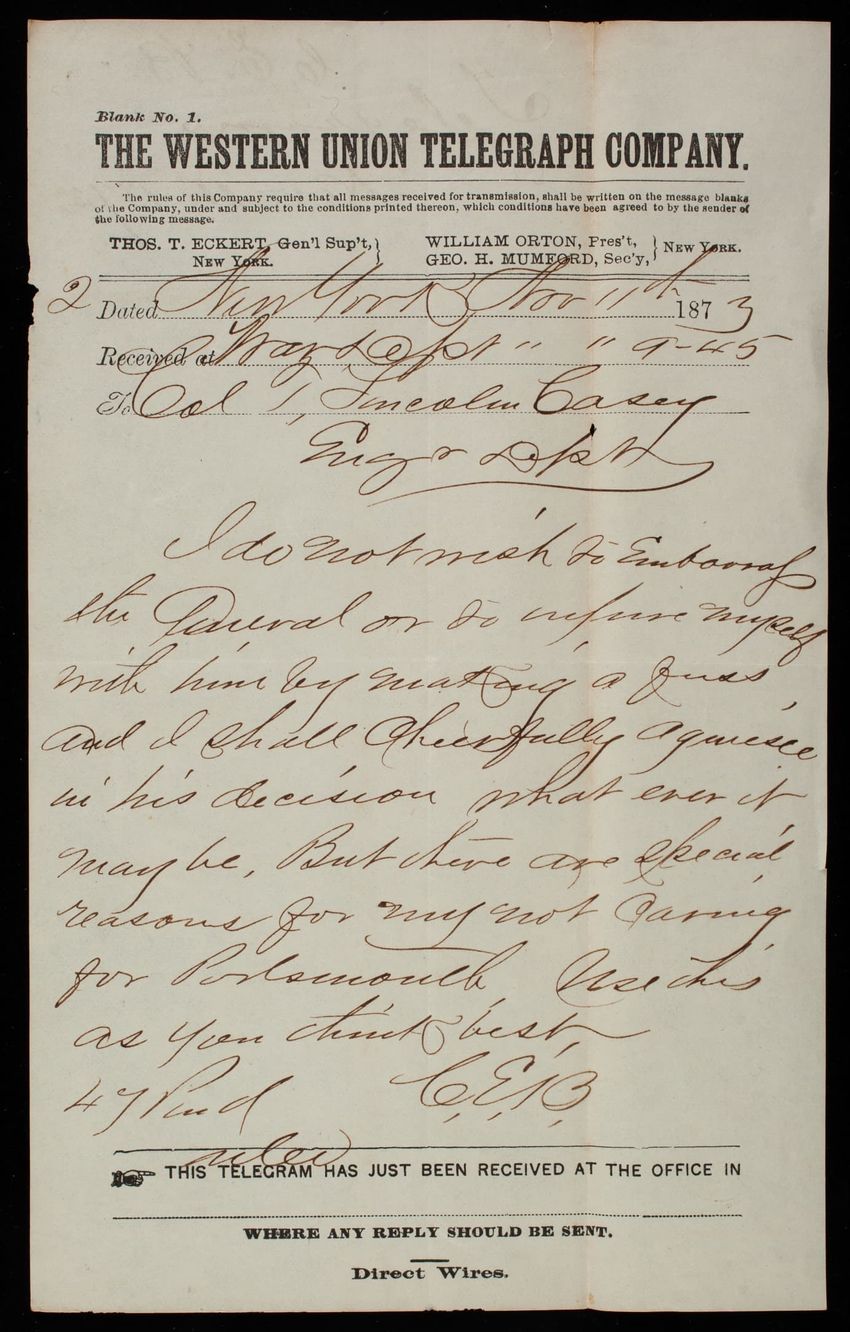 Blank No. 1.
THE WESTERN UNION TELEGRAPH COMPANY.
The rules of this Company require that all messages received for transmission, shall be written on the message blanks
of the Company, under and subject to the conditions printed thereon, which conditions have been agreed to by the sender of
the following message.
THOS. T. ECKERT, Gen'l Sup't, } WILLIAM ORTON, Pres't, } NEW YORK.
NEW YORK. GEO. H. MUMFORD, Sec'y,
2 Dated New York Nov 11th 1873
Received at War Dept " " 9-45
To Col T, Lincoln Casey
Engr Dept
I do not wish to Embarrass
the General or to injure myself
with him by making a fuss,
and I shall cheerfully aquiesce
in his decision what ever it
may be, But there are special
reasons for my not caring
for Portsmouth, Use this
as you think best,
47 Paid C,E,B,
THIS TELEGRAM HAS JUST BEEN RECEIVED AT THE OFFICE IN
WHERE ANY REPLY SHOULD BE SENT.
Direct Wires.